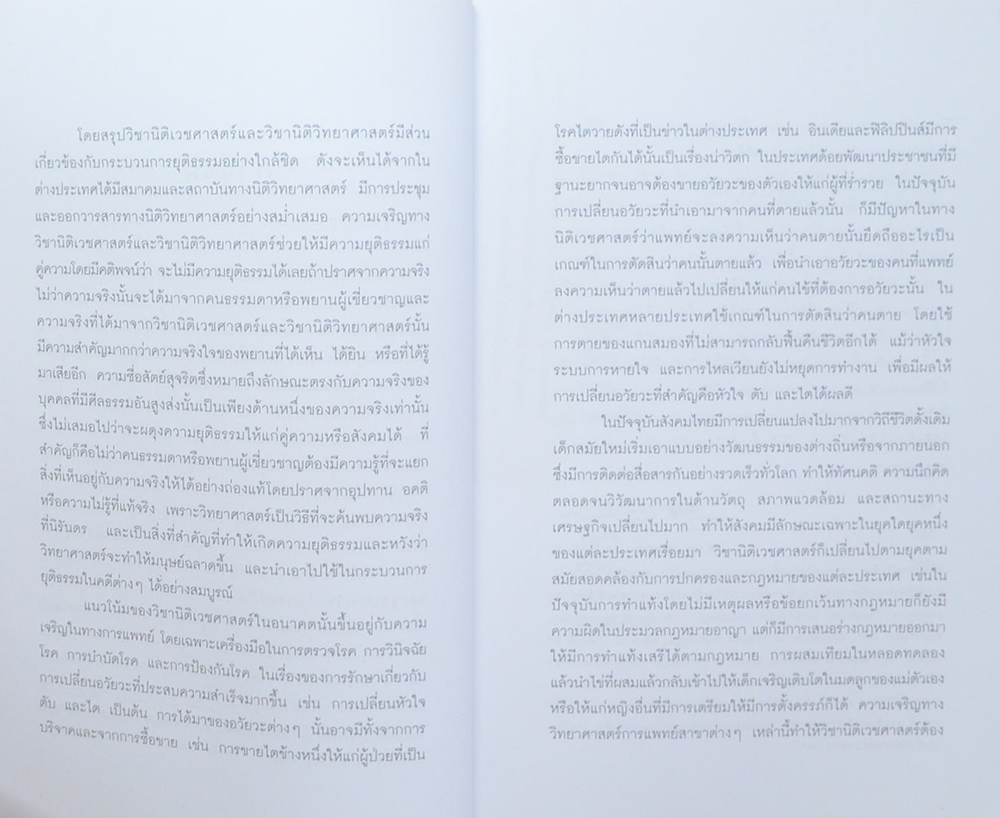 โดยสรุปวิชานิติเวชศาสตร์และวิชานิติวิทยาศาสตร์มีส่วน
เกี่ยวข้องกับกระบวนการยุติธรรมอย่างใกล้ชิด ดังจะเห็นได้จากใน
ต่างประเทศได้มีสมาคมและสถาบันทางนิติวิทยาศาสตร์ มีการประชุม
และออกวารสารทางนิติวิทยาศาสตร์อย่างสม่ำเสมอ ความเจริญทาง
วิชานิติเวชศาสตร์และวิชานิติวิทยาศาสตร์ช่วยให้มีความยุติธรรมแก่
คู่ความโดยมีคติพจน์ว่า จะไม่มีความยุติธรรมได้เลยถ้าปราศจากความจริง
ไม่ว่าความจริงนั้นจะได้มาจากคนธรรมดาหรือพยานผู้เชี่ยวชาญและ
ความจริงที่ได้มาจากวิชานิติเวชศาสตร์และวิชานิติวิทยาศาสตร์นั้น
มีความสำคัญมากกว่าความจริงใจของพยานที่ได้เห็น ได้ยิน หรือที่ได้รู้
มาเสียอีก ความซื่อสัตย์สุจริตซึ่งหมายถึงลักษณะตรงกับความจริงของ
บุคคลที่มีศีลธรรมอันสูงส่งนั้นเป็นเพียงด้านหนึ่งของความจริงเท่านั้น
ซึ่งไม่เสมอไปว่าจะผดุงความยุติธรรมให้แก่คู่ความหรือสังคมได้ ที่
สำคัญก็คือไม่ว่าคนธรรมดาหรือพยานผู้เชี่ยวชาญต้องมีความรู้ที่จะแยก
สิ่งที่เห็นอยู่กับความจริงให้ได้อย่างถ่องแท้โดยปราศจากอุปทาน อคติ
หรือความไม่รู้ที่แท้จริง เพราะวิทยาศาสตร์เป็นวิธีที่จะค้นพบความจริง
ที่นิรันดร และเป็นสิ่งที่สำคัญที่ทำให้เกิดความยุติธรรมและหวังว่า
วิทยาศาสตร์จะทำให้มนุษย์ฉลาดขึ้น และนำเอาไปใช้ในกระบวนการ
ยุติธรรมในคดีต่างๆ ได้อย่างสมบูรณ์
แนวโน้มของวิชานิติเวชศาสตร์ในอนาคตนั้นขึ้นอยู่กับความ
เจริญในทางการแพทย์ โดยเฉพาะเครื่องมือในการตรวจโรค การวินิจฉัย
โรค การบำบัดโรค และการป้องกันโรค ในเรื่องของการรักษาเกี่ยวกับ
การเปลี่ยนอวัยวะที่ประสบความสำเร็จมากขึ้น เช่น การเปลี่ยนหัวใจ
ตับ และไต เป็นต้น การได้มาของอวัยวะต่างๆ นั้นอาจมีทั้งจากการ
บริจาคและจากการซื้อขาย เช่น การขายไตข้างหนึ่งให้แก่ผู้ป่วยที่เป็น
โรคไตวายดังที่เป็นข่าวในต่างประเทศ เช่น อินเดียและฟิลิปปินส์มีการ
ซื้อขายไตกันได้นั้นเป็นเรื่องน่าวิตก ในประเทศด้อยพัฒนาประชาชนที่มี
ฐานะยากจนอาจต้องขายอวัยวะของตัวเองให้แก่ผู้ที่ร่ำรวย ในปัจจุบัน
การเปลี่ยนอวัยวะที่นำเอามาจากคนที่ตายแล้วนั้น ก็มีปัญหาในทาง
นิติเวชศาสตร์ว่าแพทย์จะลงความเห็นว่าคนตายนั้นยึดถืออะไรเป็น
เกณฑ์ในการตัดสินว่าคนนั้นตายแล้ว เพื่อนำเอาอวัยวะของคนที่แพทย์
ลงความเห็นว่าตายแล้วไปเปลี่ยนให้แก่คนไข้ที่ต้องการอวัยวะนั้น ใน
ต่างประเทศหลายประเทศใช้เกณฑ์ในการตัดสินว่าคนตาย โดยใช้
การตายของแกนสมองที่ไม่สามารถกลับฟื้นคืนชีวิตอีกได้ แม้ว่าหัวใจ
ระบบการหายใจ และการไหลเวียนยังไม่หยุดการทำงาน เพื่อมีผลให้
การเปลี่ยนอวัยวะที่สำคัญคือหัวใจ ตับ และไตได้ผลดี
ในปัจจุบันสังคมไทยมีการเปลี่ยนแปลงไปมากจากวิถีชีวิตดั้งเดิม
เด็กสมัยใหม่เริ่มเอาแบบอย่างวัฒนธรรมของต่างถิ่นหรือจากภายนอก
ซึ่งมีการติดต่อสื่อสารกันอย่างรวดเร็วทั่วโลก ทำให้ทัศนคติ ความนึกคิด
ตลอดจนวิวัฒนาการในด้านวัตถุ สภาพแวดล้อม และสถานะทาง
เศรษฐกิจเปลี่ยนไปมาก ทำให้สังคมมีลักษณะเฉพาะในยุคใดยุคหนึ่ง
ของแต่ละประเทศเรื่อยมา วิชานิติเวชศาสตร์ก็เปลี่ยนไปตามยุคตาม
สมัยสอดคล้องกับการปกครองและกฎหมายของแต่ละประเทศ เช่นใน
ปัจจุบันการทำแท้งโดยไม่มีเหตุผลหรือข้อยกเว้นทางกฎหมายก็ยังมี
ความผิดในประมวลกฎหมายอาญา แต่ก็มีการเสนอร่างกฎหมายออกมา
ให้มีการทำแท้งเสรีได้ตามกฎหมาย การผสมเทียมในหลอดทดลอง
แล้วนำไข่ที่ผสมแล้วกลับเข้าไปให้เด็กเจริญเติบโตในมดลูกของแม่ตัวเอง
หรือให้แก่หญิงอื่นที่มีการเตรียมให้มีการตั้งครรภ์ก็ได้ ความเจริญทาง
วิทยาศาสตร์การแพทย์สาขาต่างๆ เหล่านี้ทำให้วิชานิติเวชศาสตร์ต้อง